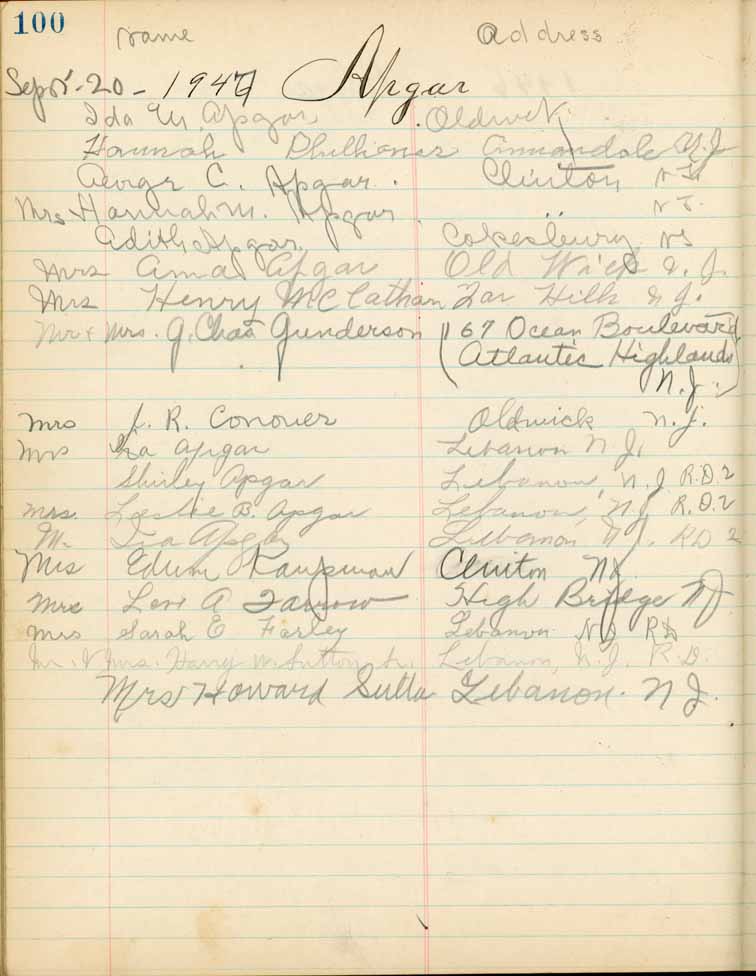 100
Name Address
Sept. 20 - 1947 Apgar
Ida M. Apgar Oldwick
Hannah Philhower Annandale N.J.
George C. Apgar. Clinton N.J.
Mrs Hannah M. Apgar. " N.J.
Edith Apgar Cokesbury NJ
Mrs Amas Apgar Old Wick N.J.
Mrs Henry McClathan Far Hills N.J.
Mr & Mrs. G. Chas Gunderson (167 Ocean Boulevard
Atlantic Highlands
N.J.)
Mrs J. R. Conover Oldwick N.J.
Mrs Ira Apgar Lebanon N.J.
Shirley Apgar Lebanon, N.J R.D.2
Mrs. Leslie B. Apgar Lebanon, N.J R.D.2
Mr. Ira Apgar Lebanon N.J. RD 2
Mrs Edwin Clinton NJ.
Mrs A Farrow High Bridge NJ
Mrs Sarah E Farley Lebanon NJ RD
Mr. & Mrs. Harry W. Sutton, Sr. Lebanon, N.J. R.D.
Mrs Howard Sutton Lebanon. N.J.